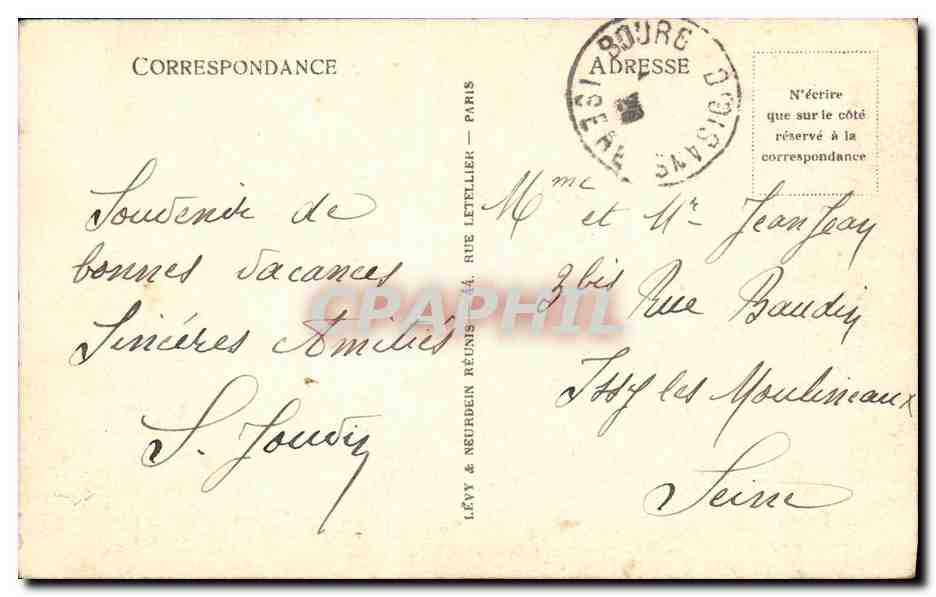 CORRESPONDANCE
Souvenir de
bonnes vacances
Sincères Amitiés
LÉVY & NEURDEIN RÉUNIS — 44, RUE LETELLIER — PARIS
ADRESSE
BOURG D'OISANS
ISÈRE
N'écrire
que sur le côté
réservé à la
correspondance
Mme et Mr JeanJean
3bis Rue Baudin
Issy les Moulineaux
Seine
CPAPHIL